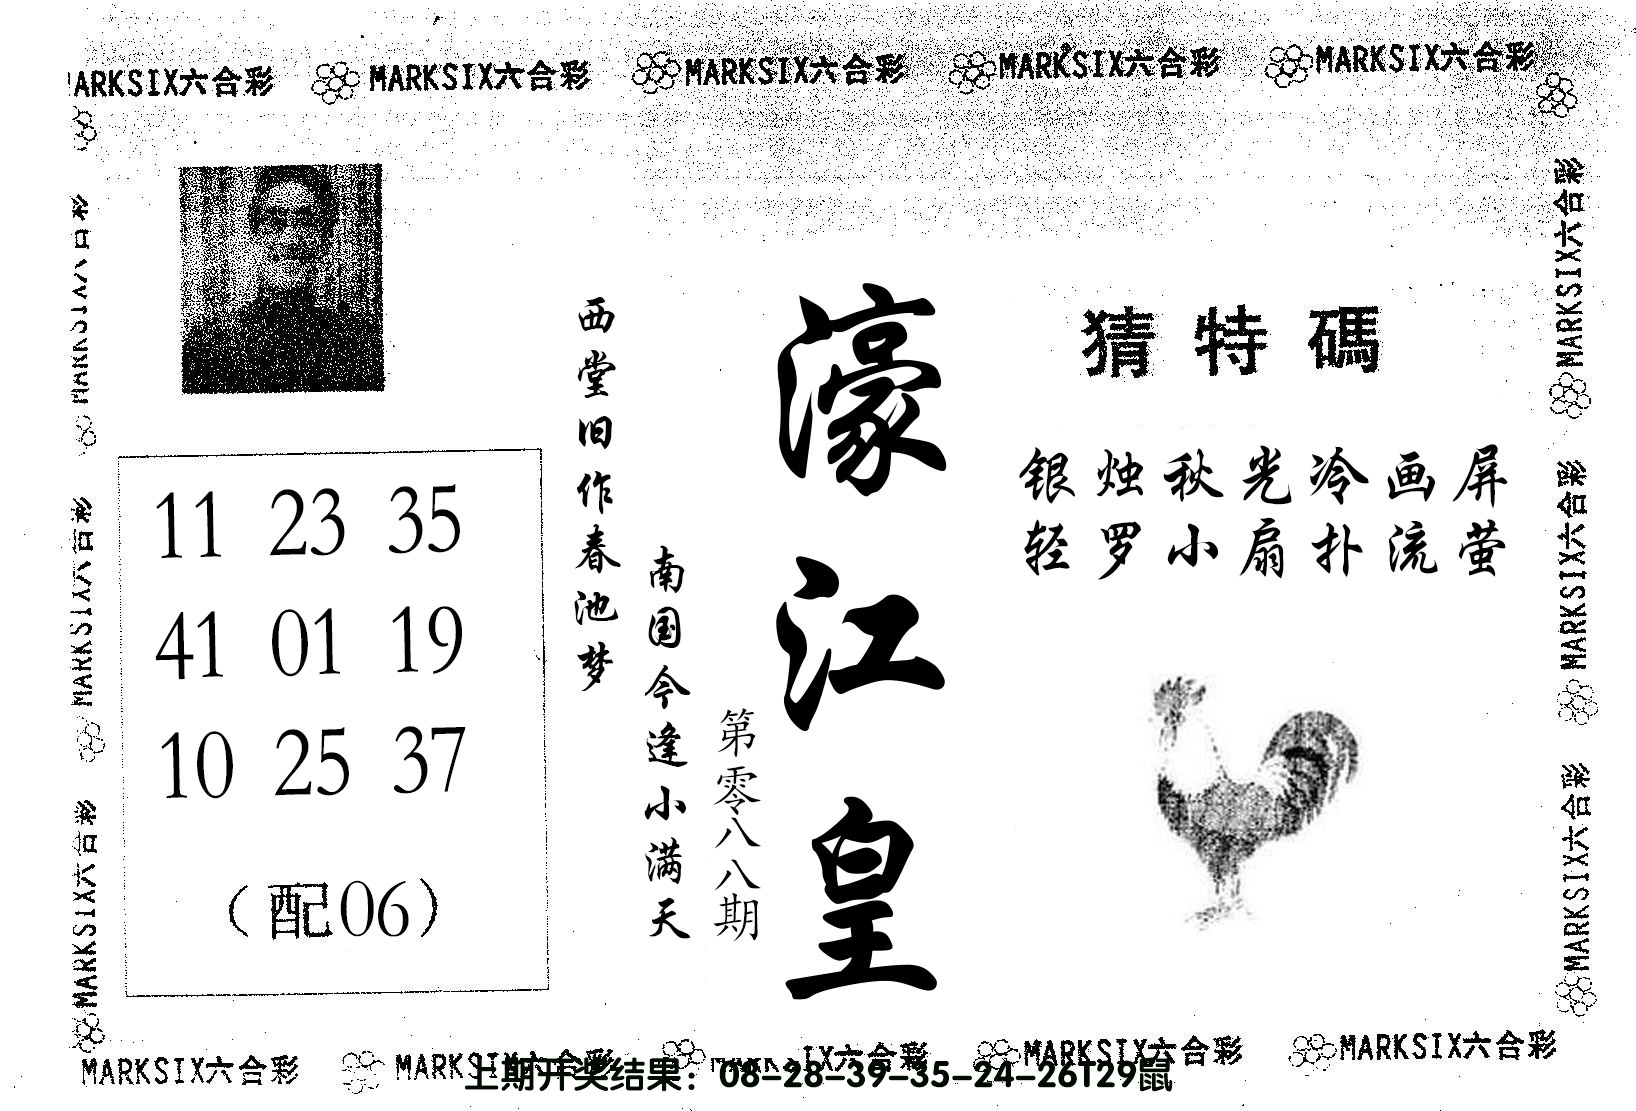 MARKSIX六合彩 MARKSIX六合彩 MARKSIX六合彩 MARKSIX六合彩
猜特碼
银烛秋光冷画屏
轻罗小扇扑流萤
濠江皇
第零八八期
南国今逢小满天
西堂旧作春池梦
11 23 35
41 01 19
10 25 37
（配06）
MARKSIX六合彩
MARKSIX六合彩
MARKSIX六合彩
MARKSIX六合彩
MARKSIX六合彩
MARKSIX六合彩 MARKSIX六合彩 MARKSIX六合彩 MARKSIX六合彩
上期开奖结果：08-28-39-35-24-26T29鼠